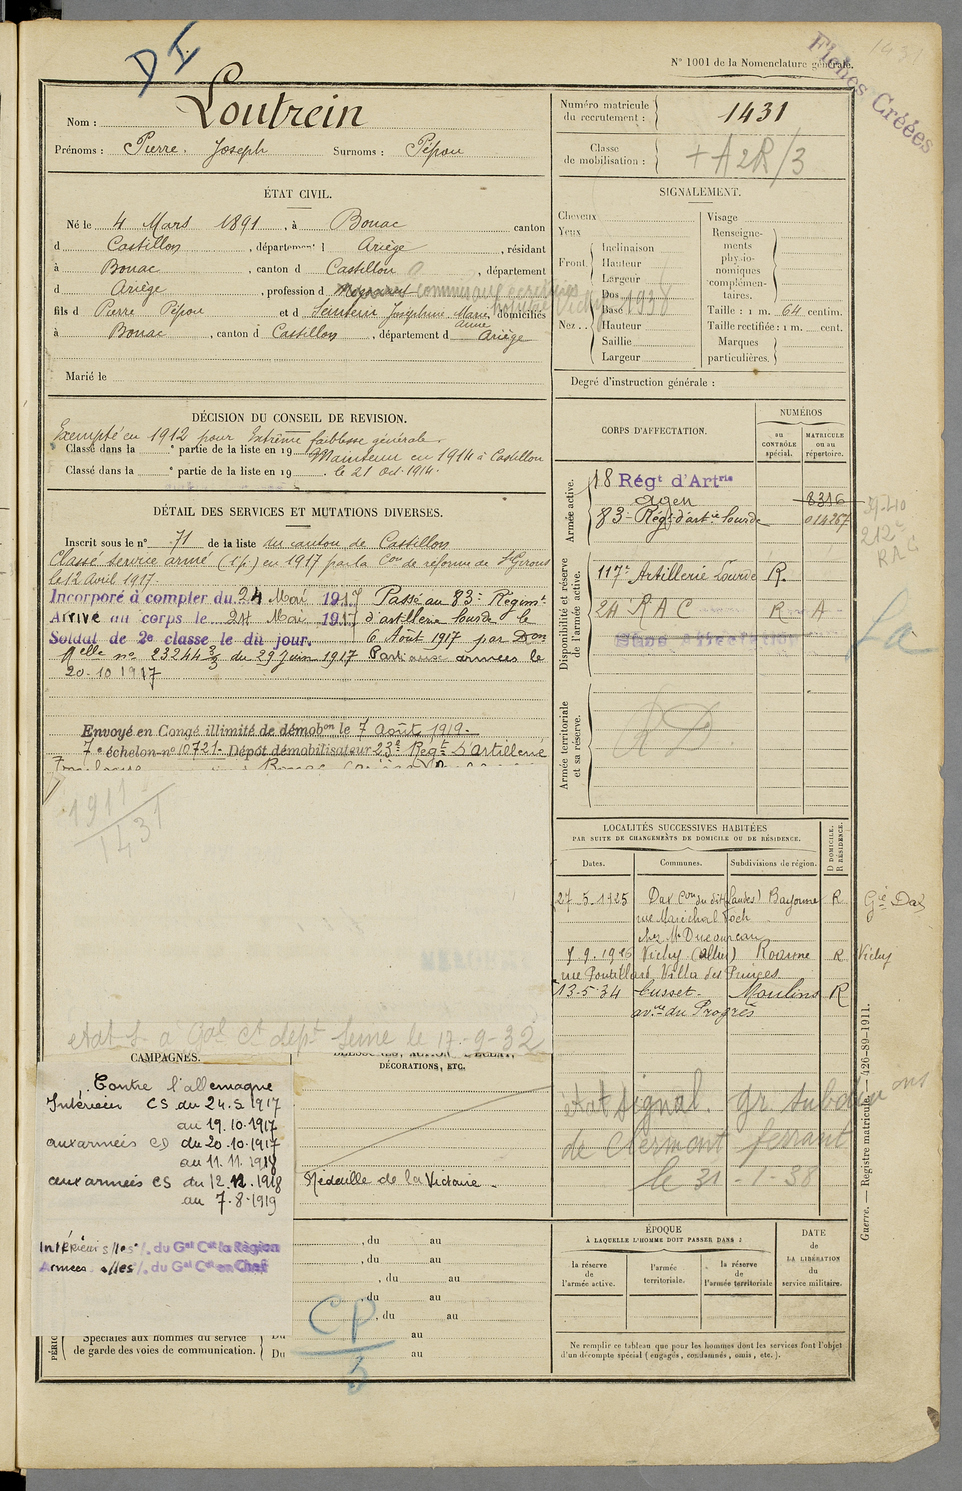 D I
N° 1001 de la Nomenclature générale.
1431
Fiches Créées
Nom : Loutrein
Prénoms : Pierre. Joseph Surnoms : Pépou
Numéro matricule du recrutement : 1431
Classe de mobilisation : + A 2R/3
ÉTAT CIVIL.
Né le 4 Mars 1891, à Bonac canton
d Castillon, département d Ariège, résidant
à Bonac, canton d Castillon, département
d Ariège, profession d commis aux écritures
fils d Pierre Pépou et d Sentein Joséphine Marie Anne domiciliés
à Bonac, canton d Castillon, département d Ariège
Marié le
Vichy 1938
SIGNALEMENT.
Cheveux
Yeux
Front. Inclinaison
Hauteur
Largeur
Nez.. Dos
Base
Hauteur
Saillie
Largeur
Visage
Renseignements physionomiques complémentaires.
Taille : 1 m. 64 centim.
Taille rectifiée : 1 m. cent.
Marques particulières.
Degré d'instruction générale :
DÉCISION DU CONSEIL DE REVISION.
Exempté en 1912 pour Extrême faiblesse générale.
Classé dans la ° partie de la liste en 19 Maintenu en 1914 à Castillon
Classé dans la ° partie de la liste en 19 le 21 Oct. 1914.
DÉTAIL DES SERVICES ET MUTATIONS DIVERSES.
Inscrit sous le n° 71 de la liste du canton de Castillon
Classé service armé (1 p.) en 1917 par la Con de réforme de St Girons
le 12 Avril 1917.
Incorporé à compter du 24 Mai 1917 Passé au 83e Régimt
Arrivé au corps le 24 Mai 1917 d'artillerie lourde le
Soldat de 2e classe le dit jour. 6 Août 1917 par Don
Melle no 23244 3/3 du 29 Juin 1917 Parti aux armées le
20.10.1917
Envoyé en Congé illimité de démobon le 7 Août 1919.
7e échelon n° 10721. Dépôt démobilisateur 23e Regt D'artillerie
1911
1431
etat S. à Gal Ct dept Seine le 17-9-32
CORPS D'AFFECTATION.
NUMÉROS
au CONTRÔLE spécial.
MATRICULE ou au répertoire.
Armée active.
18 Régt d'Artrie
Agen 8316
83e Régt d'artie lourde 014267
Disponibilité et réserve de l'armée active.
117e Artillerie Lourde R.
24 R A C R A
Sans affectation
Armée territoriale et sa réserve.
R D
212e
R A C
La
LOCALITÉS SUCCESSIVES HABITÉES
PAR SUITE DE CHANGEMENTS DE DOMICILE OU DE RÉSIDENCE.
Dates. Communes. Subdivisions de région. D DOMICILE. R RÉSIDENCE.
27-5-1925 Dax Con du dit (Landes) Bayonne R Gie Dax
rue Maréchal Foch
chez Mr Ducourneau
7-9-1926 Vichy (Allier) Roanne R Vichy
rue Pontillard, Villa des Pinges
13-5-34 Cusset. Moulins R
av.ue du Progrès
etat signal. gr. subdivions
de Clermont ferrant
le 31-1-38
Guerre. — Registre matricule. — 426-89-1911.
CAMPAGNES.
Contre l'allemagne
Intérieur CS du 24.5.1917
au 19.10.1917
aux armées CD du 20.10.1917
au 11.11.1918
aux armées CS du 12.11.1918
au 7.8.1919
Intérieur s/les % du Gal Ct la Région
Armées s/les % du Gal Ct en Chef
BLESSURES, ACTION D'ÉCLAT,
DÉCORATIONS, ETC.
Médaille de la Victoire.
, du au
, du au
, du au
, du au
, du au
Du au
Du au
CP
3
Spéciales aux hommes du service
de garde des voies de communication.
ÉPOQUE
À LAQUELLE L'HOMME DOIT PASSER DANS :
la réserve de l'armée active.
l'armée territoriale.
la réserve de l'armée territoriale
DATE de LA LIBÉRATION du service militaire.
Ne remplir ce tableau que pour les hommes dont les services font l'objet
d'un décompte spécial (engagés, condamnés, omis, etc.).